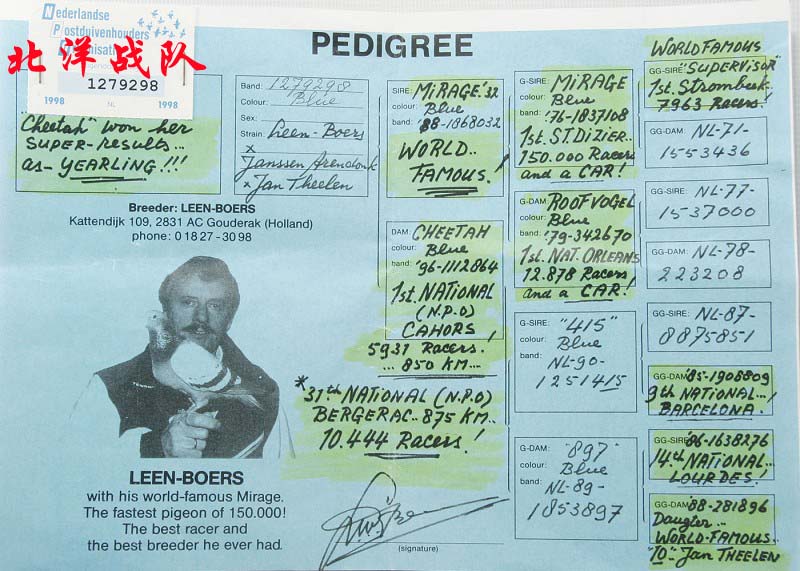 Nederlandse
Postduivenhouders
Organisatie
北洋战队
1279298
1998 NL 1998
"Cheetah" won her
SUPER-RESULTS...
as- YEARLING!!!
PEDIGREE
Band: 1279298
Colour: Blue
Sex:
Strain: Leen-Boers
x
Janssen Arendonk
x Jan Theelen
Breeder: LEEN-BOERS
Kattendijk 109, 2831 AC Gouderak (Holland)
phone: 01827-3098
LEEN-BOERS
with his world-famous Mirage.
The fastest pigeon of 150.000!
The best racer and
the best breeder he ever had.
SIRE: MIRAGE '32
colour: Blue
band: '88-1868032
WORLD..
FAMOUS.!
DAM: CHEETAH
colour: Blue
band: '96-1112864
1st. NATIONAL
(N.P.O)
CAHORS!
5931 Racers..
... 850 KM...
*31th NATIONAL (N.P.O)
BERGERAC.. 875 KM..
10.444 Racers!
(signature)
G-SIRE: MIRAGE
colour: Blue
band: '76-1837108
1st. ST. DIZIER..
150.000 Racers
and a CAR!
G-DAM: ROOFVOGEL
colour: Blue
band: '79-342670
1st. NAT. ORLEANS
12.878 Racers
and a CAR!
G-SIRE: "415"
colour: Blue
band: NL-90-
1251415
G-DAM: "897"
colour: Blue
band: NL-89-
1853897
WORLD FAMOUS
GG-SIRE: "SUPERVISOR"
1st. Strombeek,
7963 Racers!
GG-DAM: NL-71-
1553436
GG-SIRE: NL-77-
1537000
GG-DAM: NL-78-
223208
GG-SIRE: NL-87-
8875851
GG-DAM: '85-1908809
9th NATIONAL...
BARCELONA.!
GG-SIRE: '86-1638276
14th NATIONAL...
LOURDES!
GG-DAM: '88-281896
Daugter..
WORLD-FAMOUS..
"10"- Jan THEELEN